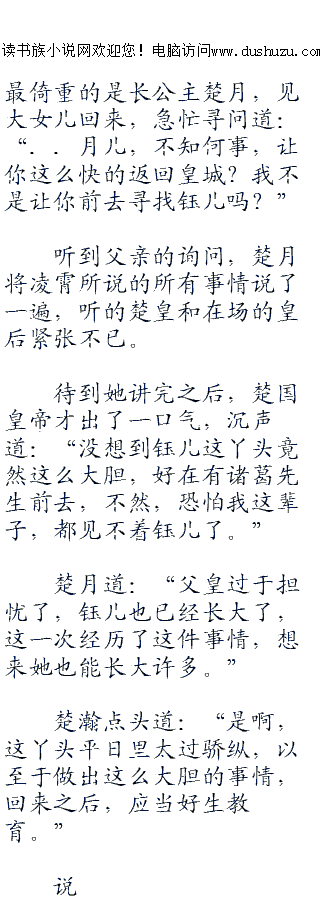 读书族小说网欢迎您！电脑访问www.dushuzu.com
最倚重的是长公主楚月，见
大女儿回来，急忙寻问道：
“．．月儿，不知何事，让
你这么快的返回皇城？我不
是让你前去寻找钰儿吗？”
听到父亲的询问，楚月
将凌霄所说的所有事情说了
一遍，听的楚皇和在场的皇
后紧张不已。
待到她讲完之后，楚国
皇帝才出了一口气，沉声
道：“没想到钰儿这丫头竟
然这么大胆，好在有诸葛先
生前去，不然，恐怕我这辈
子，都见不着钰儿了。”
楚月道：“父皇过于担
忧了，钰儿也已经长大了，
这一次经历了这件事情，想
来她也能长大许多。”
楚瀚点头道：“是啊，
这丫头平日里太过骄纵，以
至于做出这么大胆的事情，
回来之后，应当好生教
育。”
说